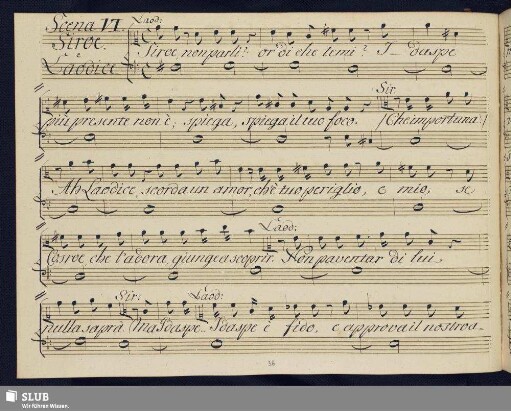 Scena VI.
Siroe.
e
Laodice
Laod:
Siroe non parli? or di che temi? I_daspe
più presente non è; spiega, spiega il tuo foco. (Che importuna!)
Sir
Ah Laodice, scorda un amor, che tuo periglio, e mio, se
Cosroe, che t'adora, giunge a scoprir. Non paventar di lui_
Laod:
Sir: Laod:
nulla saprà (Ma Idaspe_ Idaspe è fido, e approva il nostro a_
36
SLUB
Wir führen Wissen.